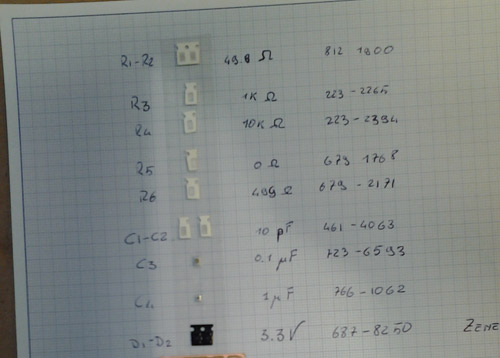 R1-R2 49.9 Ω 812 1800
R3 1K Ω 223-2265
R4 10K Ω 223-2394
R5 0 Ω 679 1768
R6 499 Ω 679-2171
C1-C2 10 pF 461-4063
C3 0.1 μF 723-6593
C4 1 μF 766-1062
D1-D2 3.3V 687-8250 ZENE